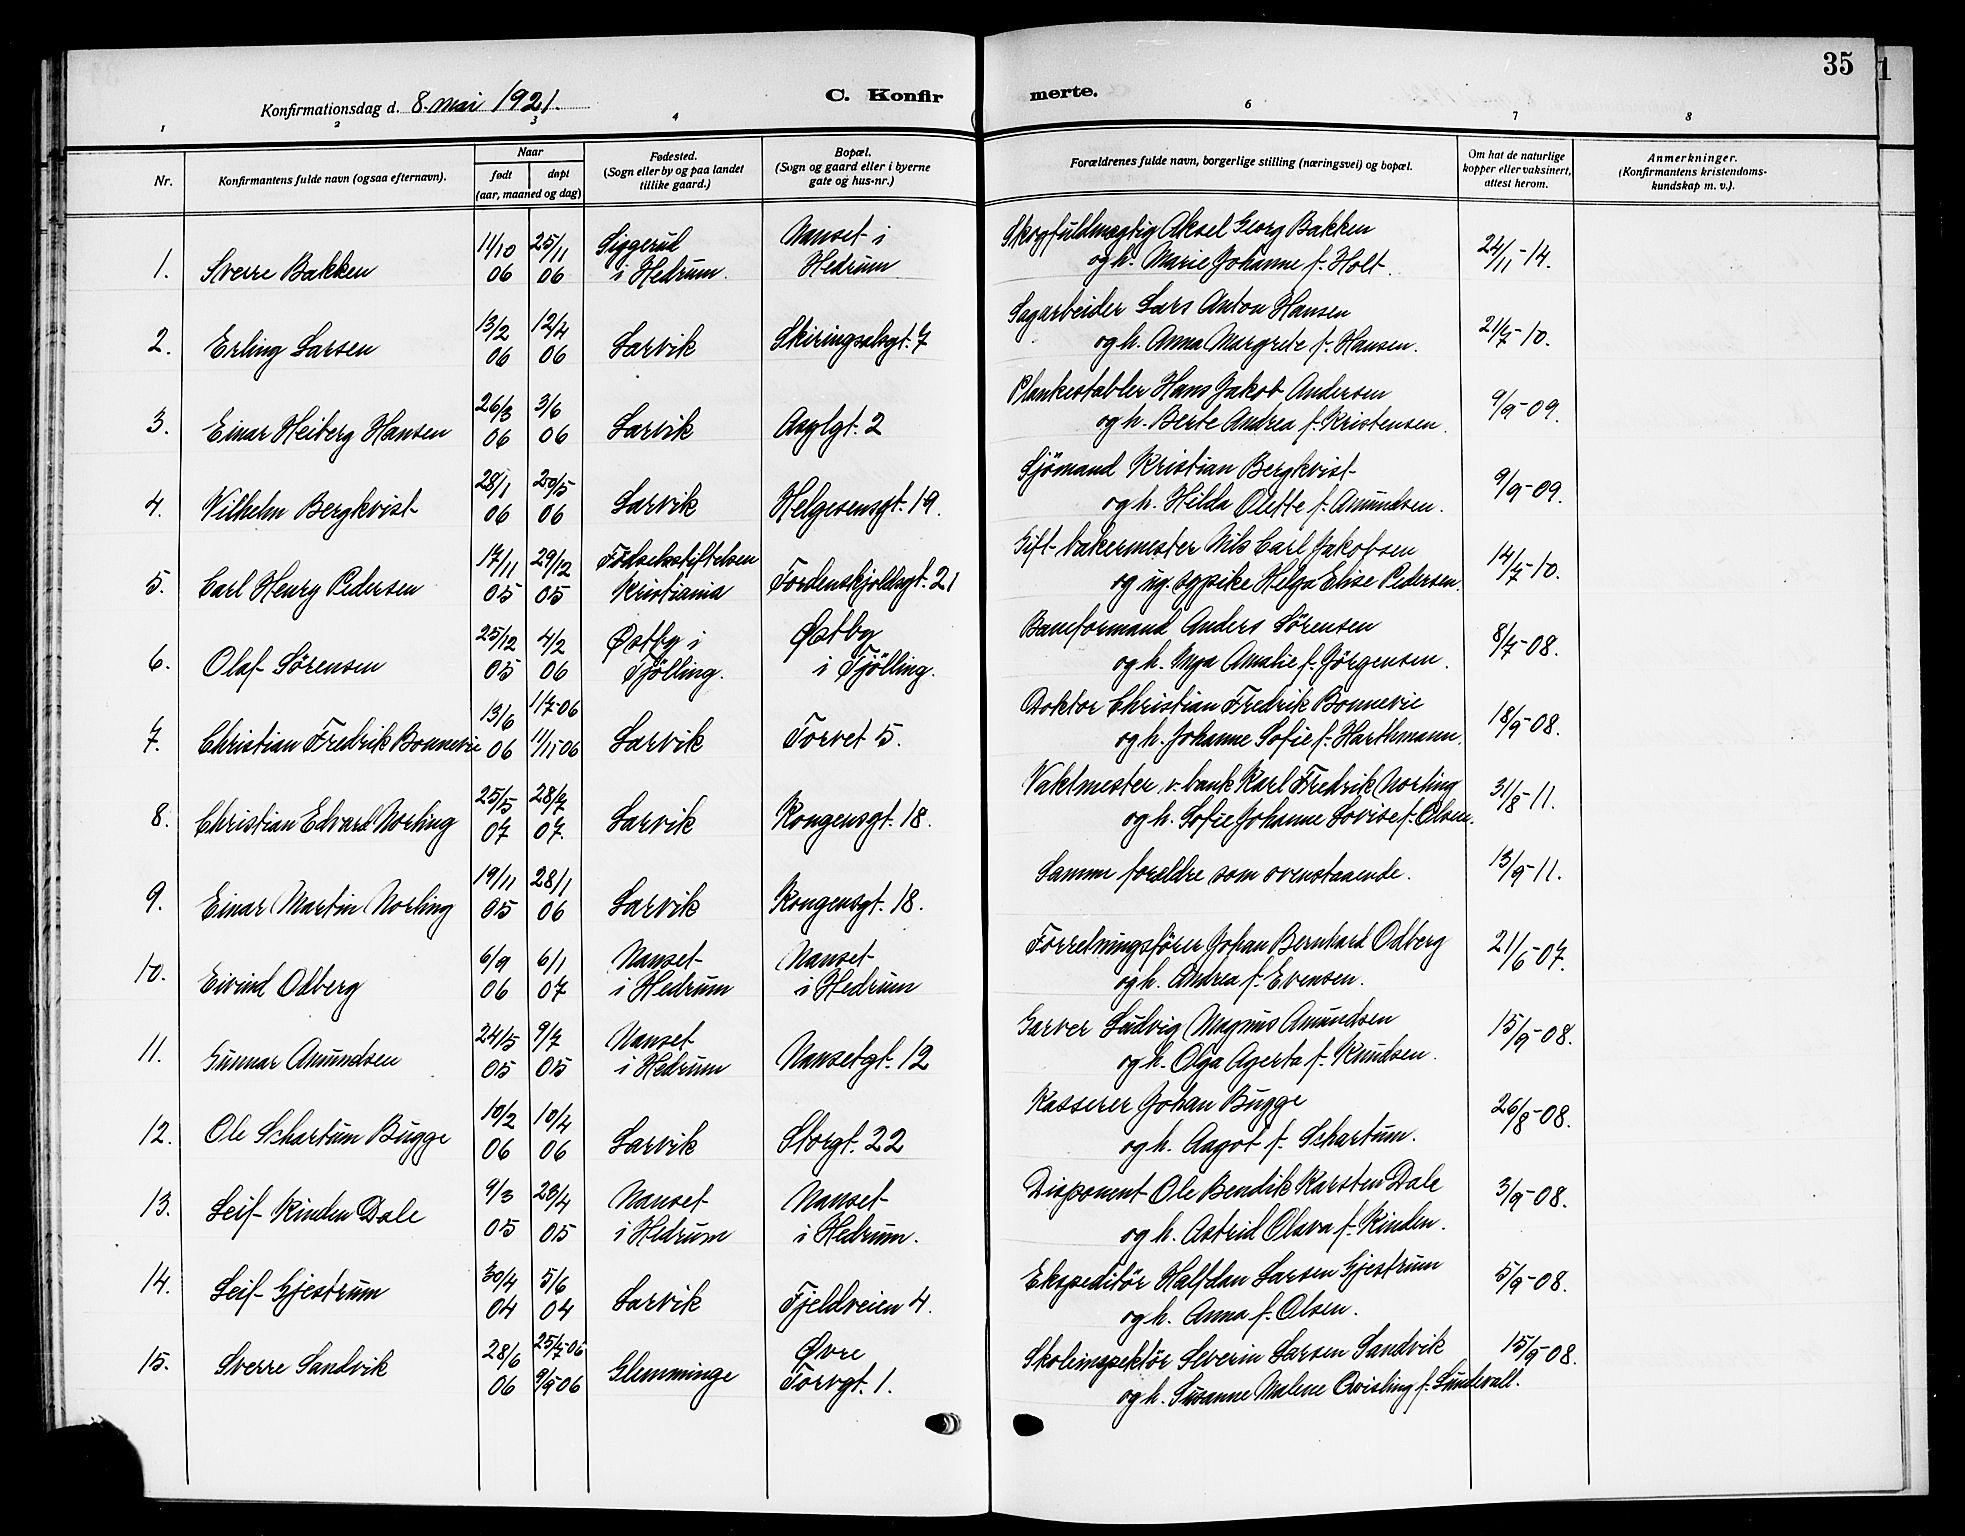 35
1
Konfirmationsdag d. 8. mai 1921.
C. Konfirmerte.
1 2 3 4 6 7 8
Nr.
Konfirmantens fulde navn (ogsaa efternavn).
Naar
født døpt
(aar, maaned og dag)
Fødested.
(Sogn eller by og paa landet
tillike gaard.)
Bopæl.
(Sogn og gaard eller i byerne
gate og hus-nr.)
Forældrenes fulde navn, borgerlige stilling (næringsvei) og bopæl.
Om hat de naturlige
kopper eller vaksinert,
attest herom.
Anmerkninger.
(Konfirmantens kristendoms-
kundskap m. v.).
11/10 25/11 Siggerud Nanset i Skogfuldmægtig Aksel Georg Bakken
1. Sverre Bakken 06 06 i Hedrum. Hedrum og h. Marie Johanne f. Holt. 24/11-14.
13/2 12/4 Sagarbeider Lars Anton Hansen
2. Erling Larsen 06 06 Larvik Skiringssalsgt. 7 og h. Anna Margrete f. Hansen. 21/7-10.
26/3 3/6 Plankestabler Hans Jakob Andersen
3. Einar Heiberg Hansen 06 06 Larvik Asylgt. 2 og h. Berte Andrea f. Kristensen. 9/9-09.
28/1 20/5 Sjömand Kristian Bergkvist
4. Vilhelm Bergkvist 06 06 Larvik Helgesensgt. 19. og h. Hilda Olette f. Amundsen. 9/9-09.
17/11 29/12 Fødselsstiftelsen Gift bakermester Nils Carl Jakobsen
5. Carl Henry Pedersen 05 05 Kristiania Tordenskjoldsgt. 21 og ug. sypike Helga Elise Pedersen. 14/7-10.
25/12 4/2 Østby i Østby Baneformand Anders Sörensen
6. Olaf Sörensen 05 06 Tjölling. i Tjölling. og h. Mya Amalie f. Jörgensen. 8/7-08.
13/6 1/7-06 Doktor Christian Fredrik Bonnevie
7. Christian Fredrik Bonnevie 06 11/11-06 Larvik Torvet 5. og h. Johanne Sofie f. Harthmann. 18/9-08.
25/5 28/7 Vaktmester v. bank Karl Fredrik Norling
8. Christian Edvard Norling 07 07. Larvik Kongensgt. 18. og h. Sofie Johanne Lovise f. Olsen. 31/8-11.
19/11 28/1
9. Einar Martin Norling 05 06 Larvik Kongensgt. 18. Samme forældre som ovenstaaende. 13/9-11.
6/9 6/1 Nanset Nanset Forretningsfører Johan Bernhard Odberg
10. Eivind Odberg 06 07 i Hedrum i Hedrum og h. Andrea f. Evensen. 21/6-07.
24/5 9/7 Nanset Garver Ludvig Magnus Amundsen
11. Gunnar Amundsen 05 05 i Hedrum Nansetgt. 12 og h. Olga Agerta f. Knudsen. 15/9-08.
10/2 10/4 Kasserer Johan Bugge
12. Ole Schartum Bugge 06 06 Larvik Storgt. 22 og h. Aagot f. Schartum. 26/8-08.
9/3 23/4 Nanset Nanset Disponent Ole Bendik Karsten Dale
13. Leif Kinden Dale 05 05 i Hedrum i Hedrum. og h. Astrid Olava f. Kinden. 3/9-08.
30/4 5/6 Ekspeditör Halfdan Larsen Gjestrum
14. Leif Gjestrum 04 04 Larvik Fjeldveien 4. og h. Anna f. Olsen. 5/9-08.
28/6 25/7-06 Øvre Skoleinspektör Severin Larsen Sandvik
15. Sverre Sandvik 06 9/9-06 Glemminge Torvgt. 1. og h. Susanne Malene Qvisling f. Lundevall. 15/9-08.